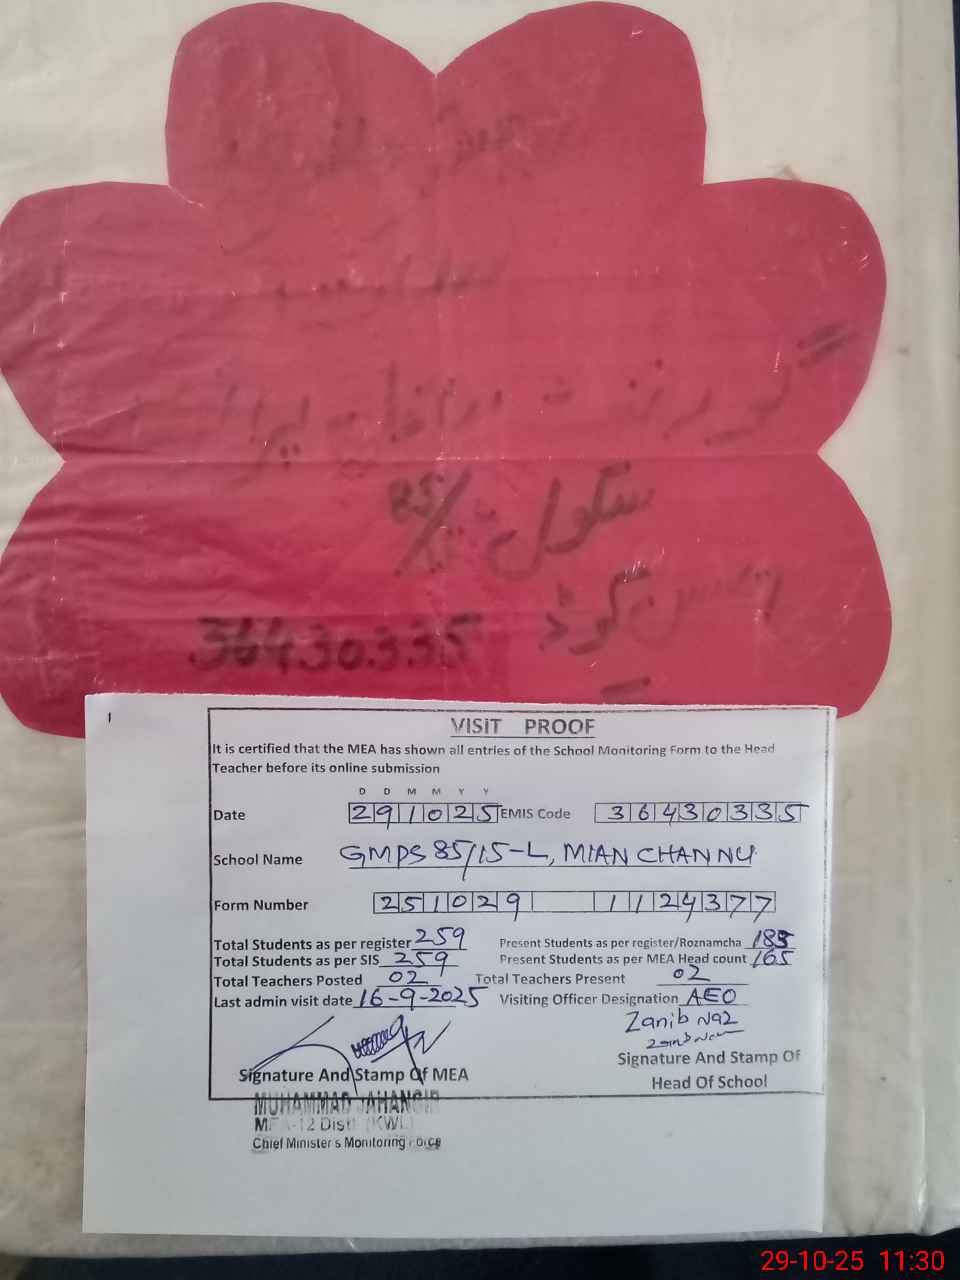 گورنمنٹ
سکول 85/
کوڈ 36430335
1
VISIT PROOF
It is certified that the MEA has shown all entries of the School Monitoring Form to the Head
Teacher before its online submission
D D M M Y Y
Date 291025 EMIS Code 36430335
School Name GMPS 85/15-L, MIAN CHANNU
Form Number 251029 1124377
Total Students as per register 259 Present Students as per register/Roznamcha 185
Total Students as per SIS 259 Present Students as per MEA Head count 165
Total Teachers Posted 02 Total Teachers Present 02
Last admin visit date 16-9-2025 Visiting Officer Designation AEO
Zanib Naz
Signature And Stamp Of MEA Signature And Stamp Of
Head Of School
MUHAMMAD JAHANGIR
MEA-12 Distt (KWL)
Chief Minister's Monitoring Force
29-10-25 11:30